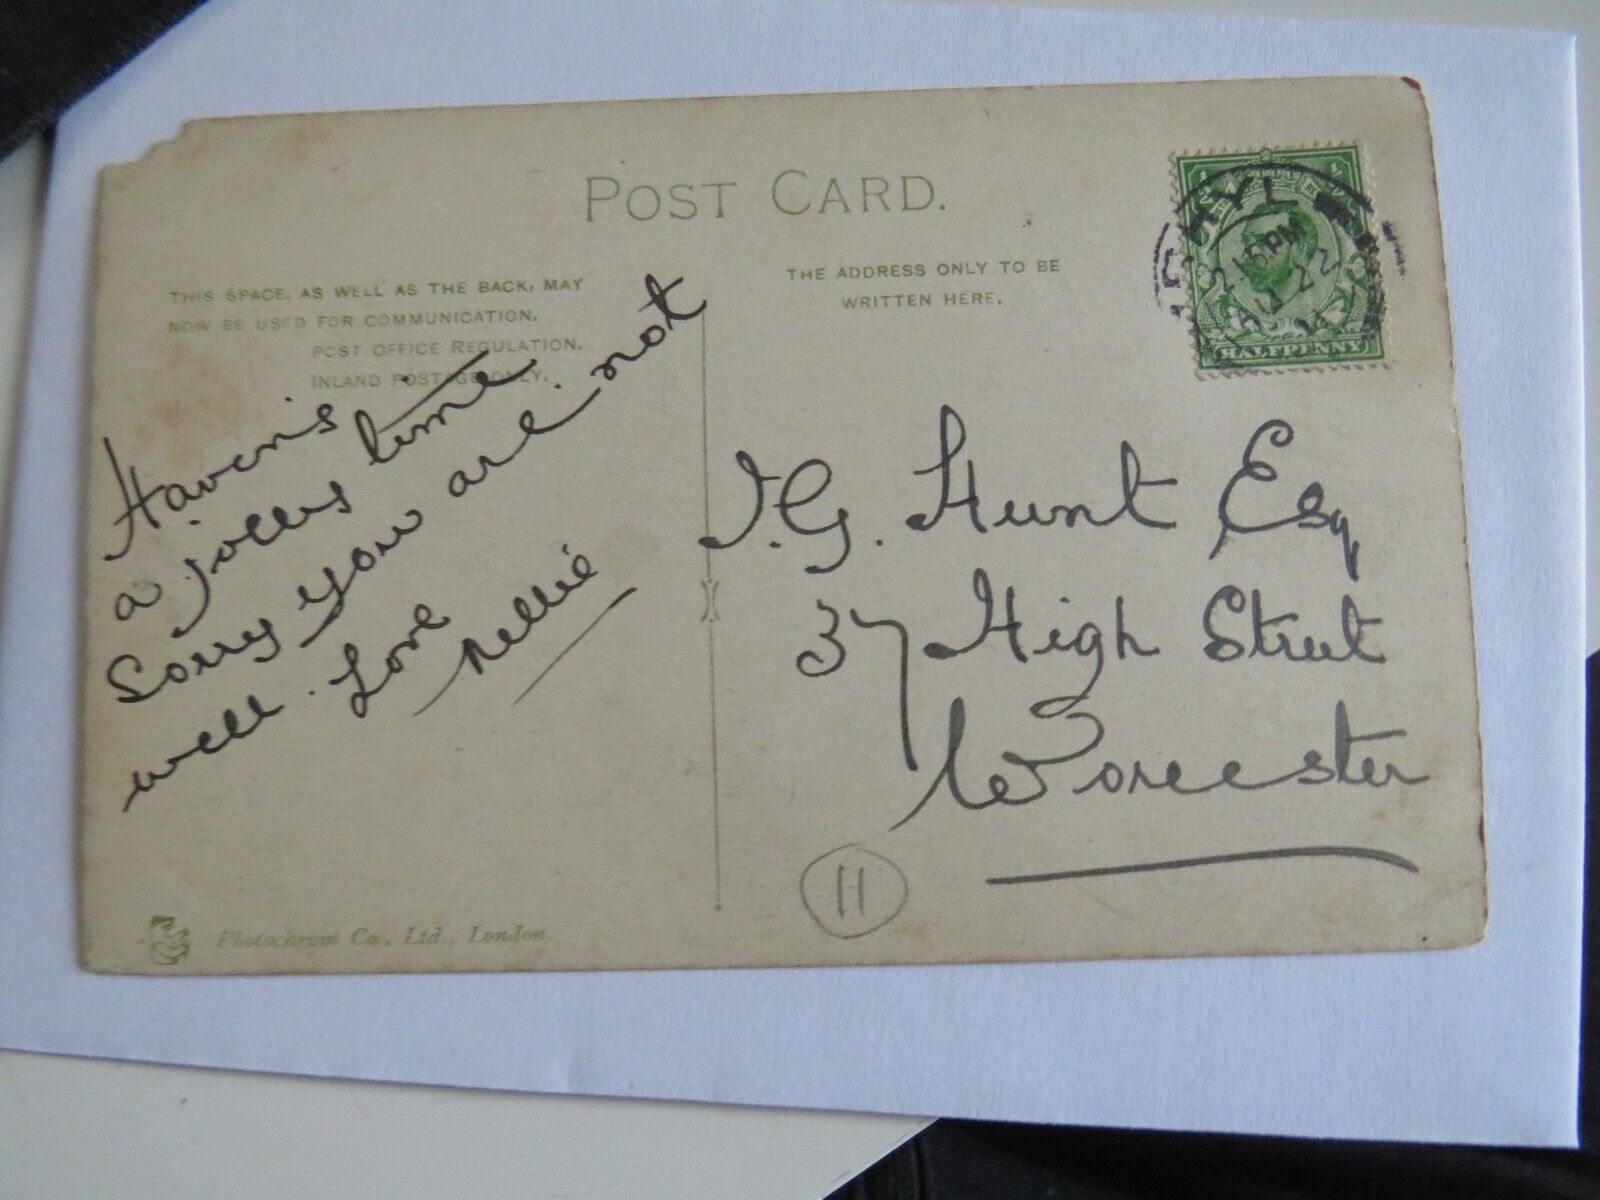 POST CARD.
THIS SPACE, AS WELL AS THE BACK, MAY
NOW BE USED FOR COMMUNICATION.
POST OFFICE REGULATION.
INLAND POSTAGE ONLY.
THE ADDRESS ONLY TO BE
WRITTEN HERE.
RHYL
2.15PM
22
HALFPENNY
a jolly time
Sorry you are not
well. Love
Nellie
J.G. Hunt Esq
37 High Street
Worcester
H
Photochrom Co., Ltd., London.